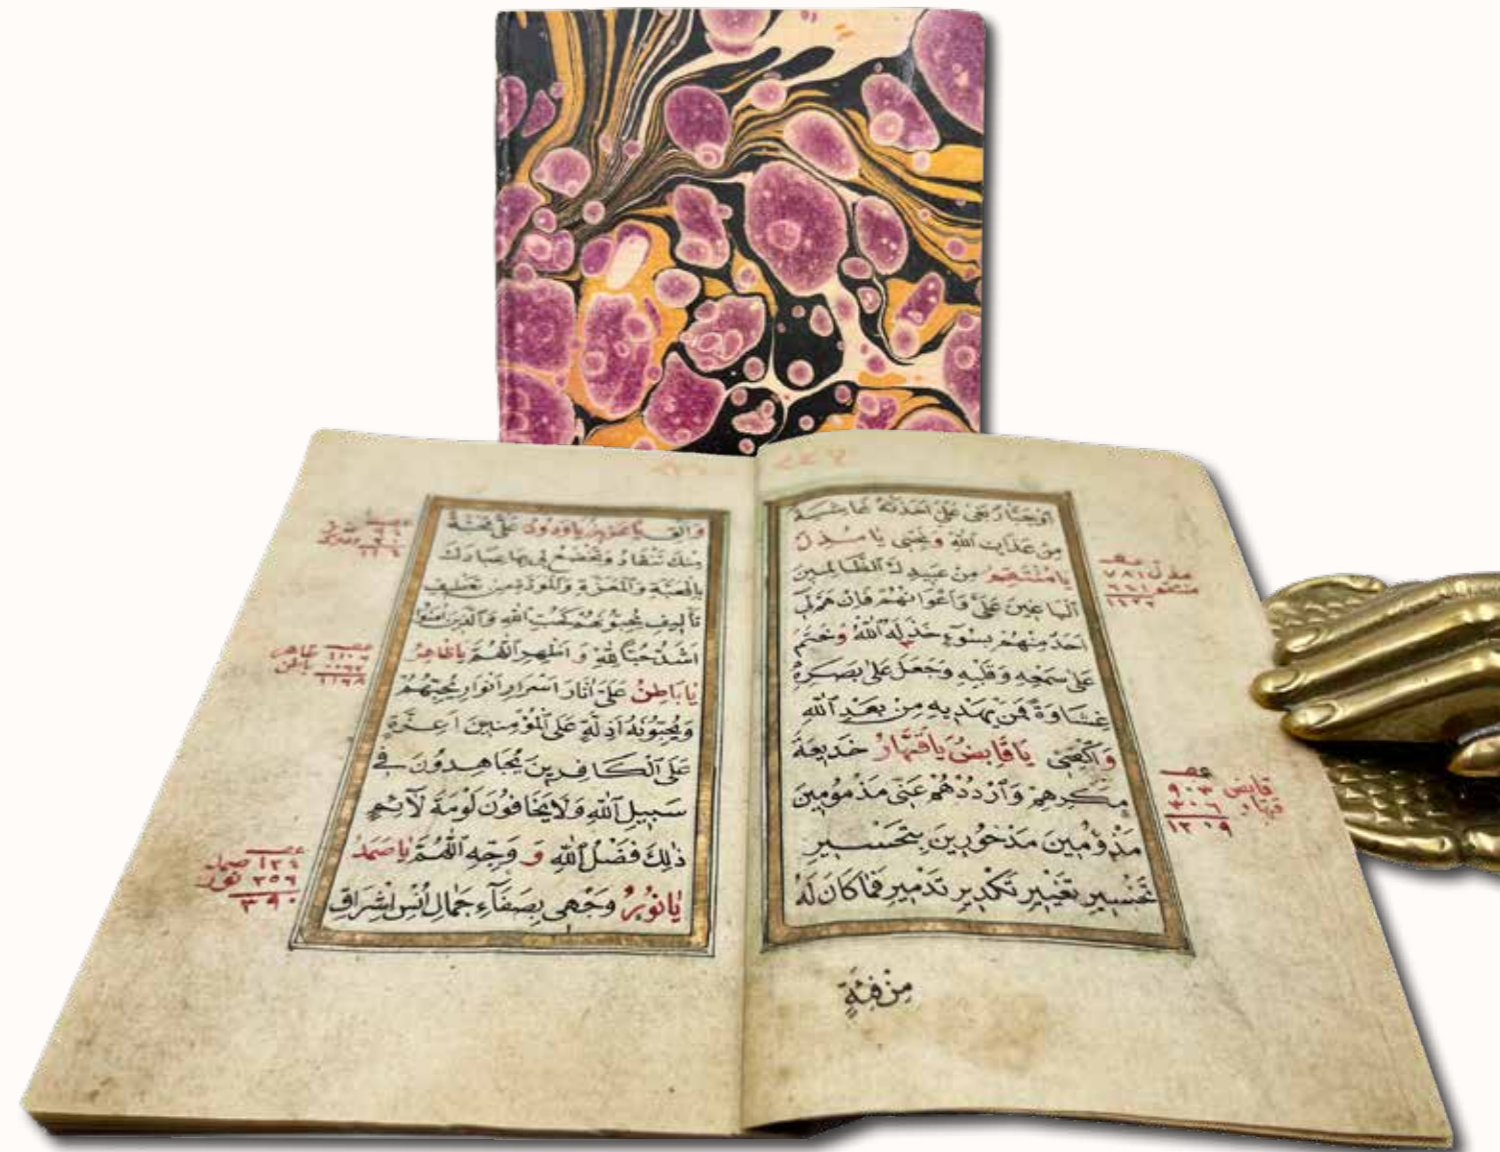 او جبار بغى علي اخذته غاشية
من عذاب الله ونجني يا مذل
يا منتقم من عبيدك الظالمين
الباغين علي واعوانهم فان هم لي
احد منهم بسوء خذله الله وختم
على سمعه وقلبه وجعل على بصره
غشاوة فمن يهديه من بعد الله
واكفني يا قابض يا قهار خديعة
مكرهم وارددهم عني مذمومين
مذؤمين مدحورين بتخسير
تغيير تكدير تدمير فما كان له
من فئة
مذل ٧٨١
منتقم
قابض ٩٠٣
قهار ٣٠٦
١٢٠٩
والق يا عزيز يا ودود علي محبة
منك تنقاد وتخضع لي بها عبادك
بالمحبة والمعزة والمودة من تعطيف
تأليف يحبونهم كحب الله والذين امنوا
اشد حبا لله و اظهر اللهم يا ظاهر
يا باطن علي اثار اسرار انوار يحبهم
ويحبونه اذلة على المؤمنين اعزة
على الكافرين يجاهدون في
سبيل الله ولا يخافون لومة لآئم
ذلك فضل الله و وجه اللهم يا صمد
يا نور وجهي بصفاء جمال انس اشراق
ظاهر ١١٠٦
باطن
صمد ١٣٤
نور ٢٥٦
٣٩٠